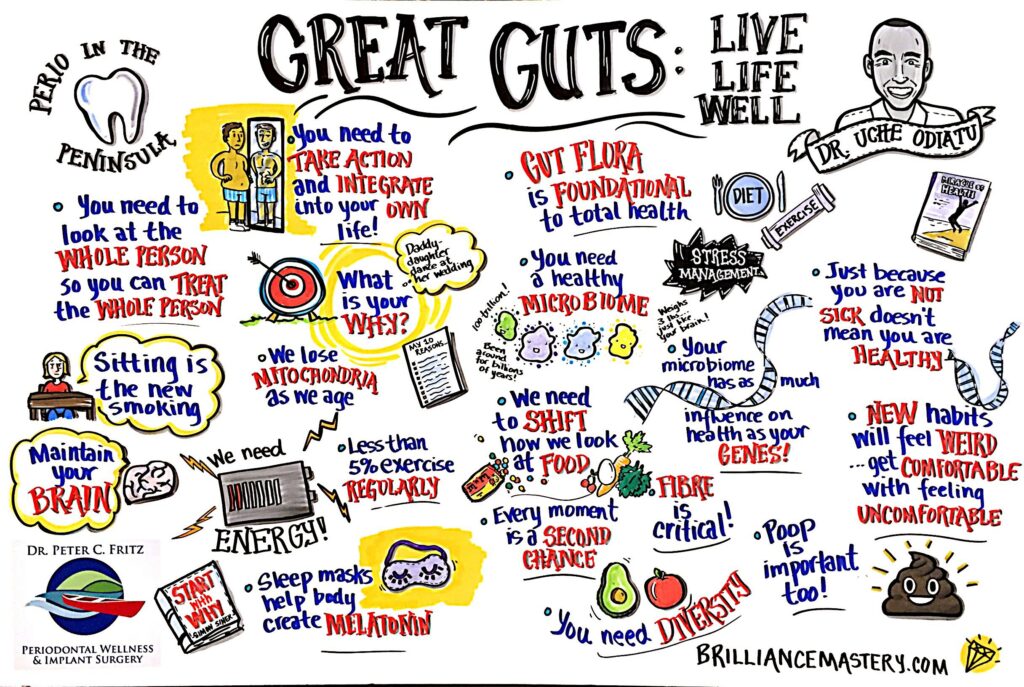 PERIO IN THE
PENINSULA
GREAT GUTS:
LIVE
LIFE
WELL
DR. UCHE ODIATU
• You need to
look at the
WHOLE PERSON
so you can TREAT
the WHOLE PERSON
• You need to
TAKE ACTION
and INTEGRATE
into your OWN
life!
• GUT FLORA
is FOUNDATIONAL
to total health
DIET
EXERCISE
STRESS
MANAGEMENT
MIRACLE OF
HEALTH
What
is your
WHY?
Daddy-
daughter
dance at
her wedding
MY 10
REASONS...
• You need
a healthy
MICROBIOME
100 trillion!
Been
around
for billions
of years!
your brain!
• Your
microbiome
has as much
influence on
health as your
GENES!
• Just because
you are NOT
SICK doesn't
mean you are
HEALTHY
Sitting is
the new
smoking
• We lose
MITOCHONDRIA
as we age
Maintain
your
BRAIN
We need
ENERGY!
• Less than
5% exercise
REGULARLY
• We need
to SHIFT
how we look
at FOOD
• FIBRE
is
critical!
• NEW habits
will feel WEIRD
...get COMFORTABLE
with feeling
UNCOMFORTABLE
• Every moment
is a SECOND
CHANCE
• Poop
is
important
too!
START
WITH
WHY
SIMON SINEK
• Sleep masks
help body
create MELATONIN
You need DIVERSITY
DR. PETER C. FRITZ
PERIODONTAL WELLNESS
& IMPLANT SURGERY
BRILLIANCEMASTERY.COM